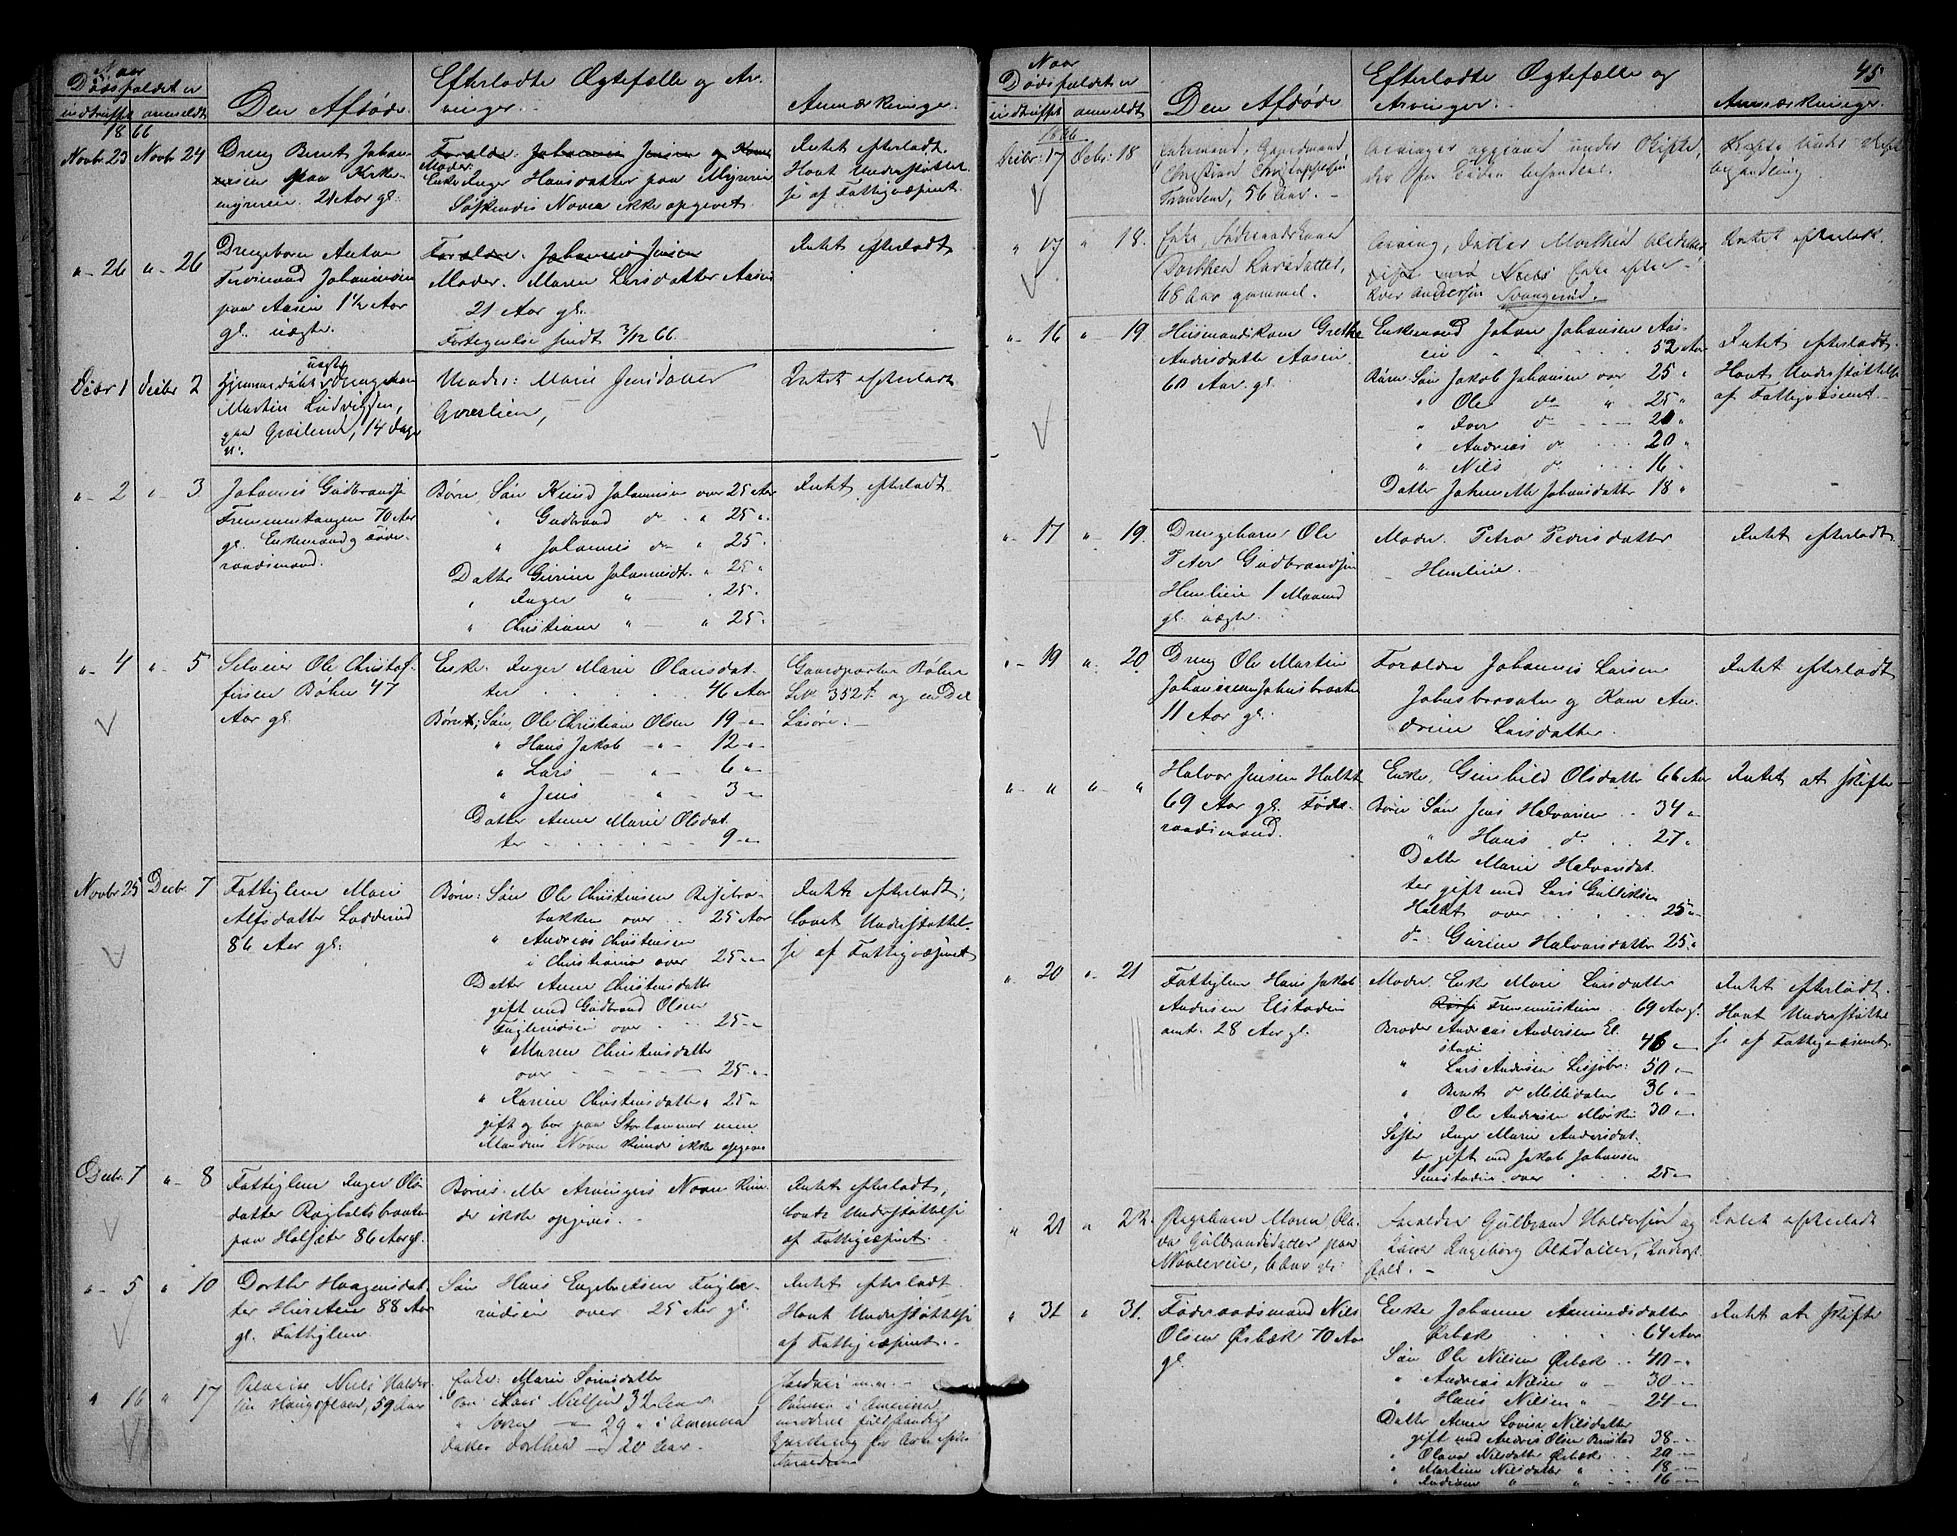 Naar
Dødsfaldet er
indtruffet anmeldt
Den Afdøde.
Efterladte Ægtefælle og Ar-
vinger.
Anmærkninger.
1866
Novbr 23 Novbr 24
Dreng Bernt Johan-
nesen paa Kirke-
myreie. 21 Aar gl:
Forældre: Johannes Jensen og Kone
Moder:
Enke Inger Hansdatter paa Myreie
Søskendes Navne ikke opgivet
Intet efterladt.
Havt Understøttel-
se af Fattigvæsenet.
" 26 " 26
Drengebarn Anton
Ferdinand Johannesen
paa Aasen 1 1/2 Aar
gl. uægte.
Forældre: Johannes Jensen
Moder. Maren Larsdatter Aasen
21 Aar gl.
Fortegnelse sendt 3/12 66.
Intet efterladt
Decbr 1 Decbr 2
uægte
Hjemmedøbt Drengebarn
Martin Ludvigsen,
14 Dage
gl:
Moder: Marie Jensdatter
Intet efterladt
" 2 " 3
Johannes Gudbrandsen
Fremmenstangen 70 Aar
gl. Enkemand og Føde-
raadsmand.
Børn, Søn Knud Johannesen over 25 Aar
" Gudbrand do " 25 "
" Johannes do " 25 "
Datter Gurine Johannesdt. " 25 "
" Inger " 25 "
" Christiane " " 25 "
Intet efterladt
" 4 " 5
Selveier Ole Christof-
fersen Bøhn 47
Aar gl.
Enke: Inger Marie Olausdat-
ter 46 Aar
Børn; Søn, Ole Christian Olsen 19 "
" Hans Jakob " 12 "
" Lars " 6 "
" Jens " 3 "
Datter Anne Marie Olsdat-
ter 9 "
Gaardparten Bøhn
og en Del
Løsøre.
Novbr 25 Decbr. 7
Fattiglem Mari
Alfsdatter
86 Aar gl:
Børn: Søn Ole Christensen
bakken over 25 Aar
" Andreas Christensen
i Christiania over 25 "
Datter Anne Christensdatter
gift med Gudbrand Olsen
Fuglerudsen over 25 "
" Maren Christensdatter
over 25 "
" Karine Christensdatter " 25 "
gift og bor paa Storhammer men
Mandens Navn kunde ikke opgives
Intet efterladt;
havt Understøttel-
se af Fattigvæsenet
Decbr. 7 " 8
Fattiglem Inger Ols-
datter
paa Holsæter 86 Aar gl.
Børns eller Arvingers Navne kun-
de ikke opgives.
Intet efterladt,
havt Understøttelse
af Fattigvæsenet.
" 5 " 10
Dorthe Haagensdat-
ter 88 Aar
gl. Fattiglem.
Søn Hans Engebretsen Fugle-
rudsen over 25 Aar gl.
Intet efterladt.
Havt Understøttelse
af Fattigvæsenet.
" 16 " 17
Niels Halvor-
sen 59 Aar
Enke: Marie Simensdatter
Søn Lars Nielsen 32 Aar
" 29 " i Amerika
Datter Dorthea 20 Aar.
i Amerika
45
Naar
Dødsfaldet er
indtruffet anmeldt
Den Afdøde
Efterladte Ægtefælle og
Arvinger.
Anmærkninger.
1866
Decbr: 17 Decbr: 18
Enkemand, Gaardmand
Christian Christophersen
56 Aar.
Arvinger opgives under Skiftet,
der for Tiden behandles.
Skifte under Skifte-
behandling.
" 17 " 18.
Enke, Føderaadskone
Dorthea Larsdatter,
68 Aar gammel.
Arving, Datter Mathea
gift med Niels Enke efter
Iver Andersen
Intet efterladt.
" 16 " 19
Husmandskone Grethe
Andersdatter Aasen
60 Aar gl.
Enkemand Johan Johansen Aas-
en 52 Aar
Børn Søn Jakob Johansen over 25 "
" Ole do " 25 "
" Iver do 21 "
" Andreas do 20 "
" Nils do 16 "
Datter Johanette Johansdatter 18 "
Intet efterladt.
Havt Understøttelse
af Fattigvæsenet.
" 17 " 19.
Drengebarn Ole
Peter Gudbrandsen
Hemlieie 1 Maaned
gl. uægte.
Moder. Petra Pedersdatter
Hemlieie.
Intet efterladt
" 19 " 20
Dreng Ole Martin
Johannesen Johnsbraaten
11 Aar gl.
Forældre Johannes Larsen
Johnsbraaten og Kone An-
drine Larsdatter.
Intet efterladt
" " " "
Halvor Jensen Holtet
69 Aar gl. Føde-
raadsmand.
Enke, Gunhild Olsdatter 66 Aar
Børn Søn Jens Halvorsen 34 "
" Hans do 27 "
Datter Marie Halvorsdat-
ter gift med Lars Gulliksen
Holtet over 25 "
do Gurine Halvorsdatter 25 "
Intet at skifte
" 20 " 21
Fattiglem Hans Jakob
Andersen Elstadeie
28 Aar gl.
Moder Enke Mari Larsdatter
69 Aar gl.
Broder Andreas Andersen El-
stadeie 46 "
" Lars Andersen 50 "
" Bernt do 36 "
" Ole Andersen 30 "
Søster Inger Marie Andersdat-
ter gift med Jakob Johansen
over 25 "
Intet efterladt.
Havt Understøttel-
se af Fattigvæsenet
" 21 " 22.
Pigebarn Maren Ola-
va Gulbrandsdatter paa
6 Aar gl:
Forældre Gulbrand Halvorsen og
Kone Ingeborg Olsdatter,
Intet efterladt
" 31 " 31.
Føderaadsmand Nils
Olsen Ørbæk 70 Aar
gl.
Enke Johanne Amundsdatter
Ørbæk 64 Aar
Søn Ole Nilsen Ørbæk 40 "
" Andreas Nilsen " 30 "
" Hans Nilsen " 24 "
Datter Anne Lovise Nilsdatter
gift med Andreas Olsen 38 "
" Olava Nilsdatter Ørbæk 20 "
" Martine Nilsdatter " 18 "
" " " 16 "
Intet at skifte